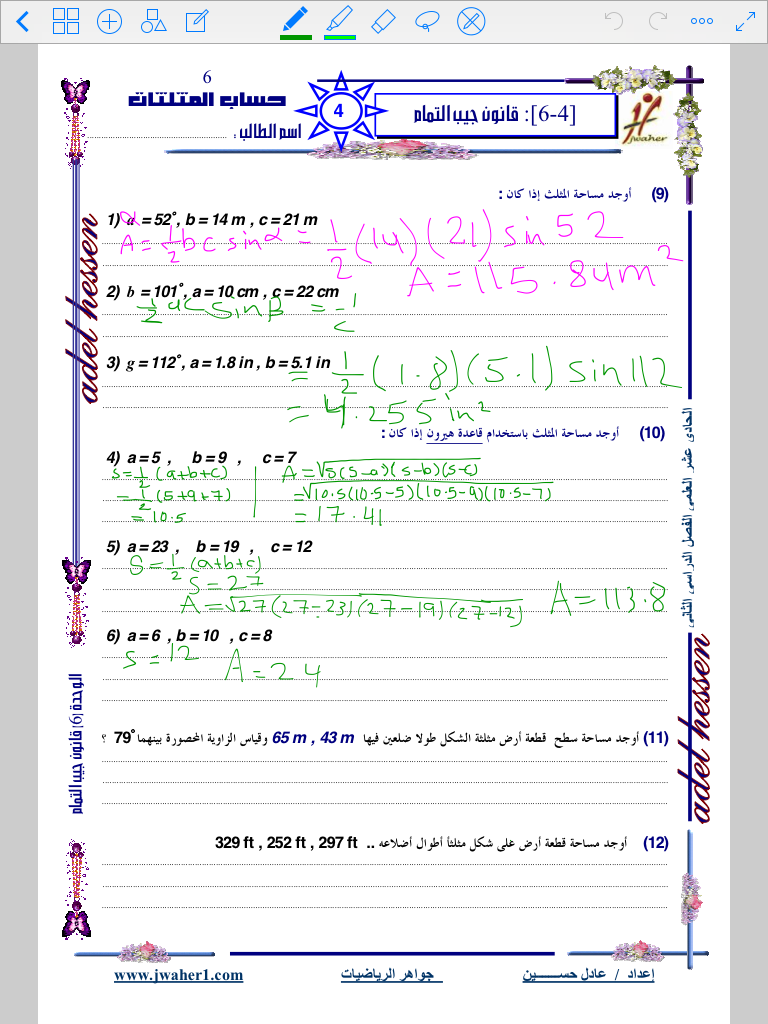 6
حساب المثلثات
4
[6-4]: قانون جيب التمام
jwaher
اسم الطالب :
(9) أوجد مساحة المثلث إذا كان :
1) α = 52°, b = 14 m , c = 21 m
A = 1/2 b c sin α = 1/2 (14)(21) sin 52
A = 115.84 m²
2) b = 101°, a = 10 cm , c = 22 cm
1/2 a c sin β =
3) g = 112°, a = 1.8 in , b = 5.1 in
= 1/2 (1.8)(5.1) sin 112
= 4.255 in²
(10) أوجد مساحة المثلث باستخدام قاعدة هيرون إذا كان :
4) a = 5 , b = 9 , c = 7
s = 1/2 (a+b+c)
= 1/2 (5+9+7)
= 10.5
A = √s(s-a)(s-b)(s-c)
= √10.5(10.5-5)(10.5-9)(10.5-7)
= 17.41
5) a = 23 , b = 19 , c = 12
S = 1/2 (a+b+c)
s = 27
A = √27(27-23)(27-19)(27-12)
A = 113.8
6) a = 6 , b = 10 , c = 8
s = 12
A = 24
(11) أوجد مساحة سطح قطعة أرض مثلثة الشكل طولا ضلعين فيها 65 m , 43 m وقياس الزاوية المحصورة بينهما 79° ؟
(12) أوجد مساحة قطعة أرض على شكل مثلثاً أطوال أضلاعه .. 329 ft , 252 ft , 297 ft
adel hessen
adel hessen
adel hessen
الحادى عشر العلمى الفصل الدراسى الثانى
الوحدة {6} قانون جيب التمام
إعداد / عادل حســـين
جواهر الرياضيات
www.jwaher1.com